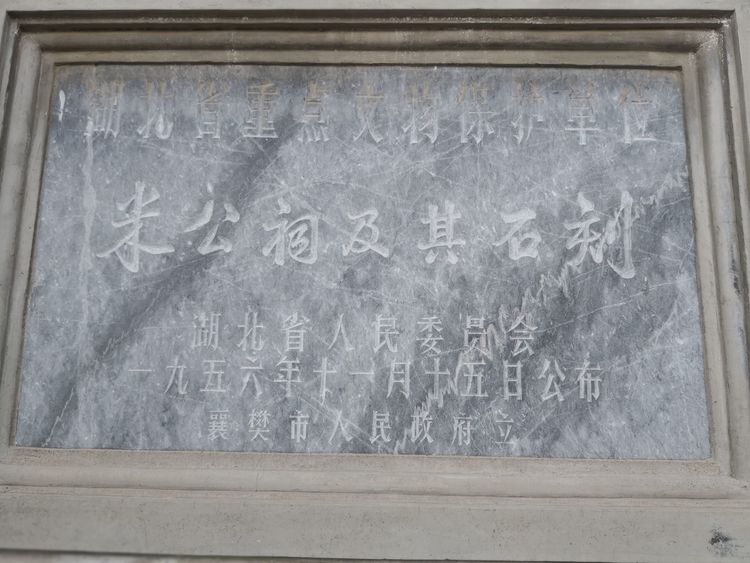 湖北省重点文物保护单位
米公祠及其石刻
湖北省人民委员会
一九五六年十一月十五日公布
襄樊市人民政府立